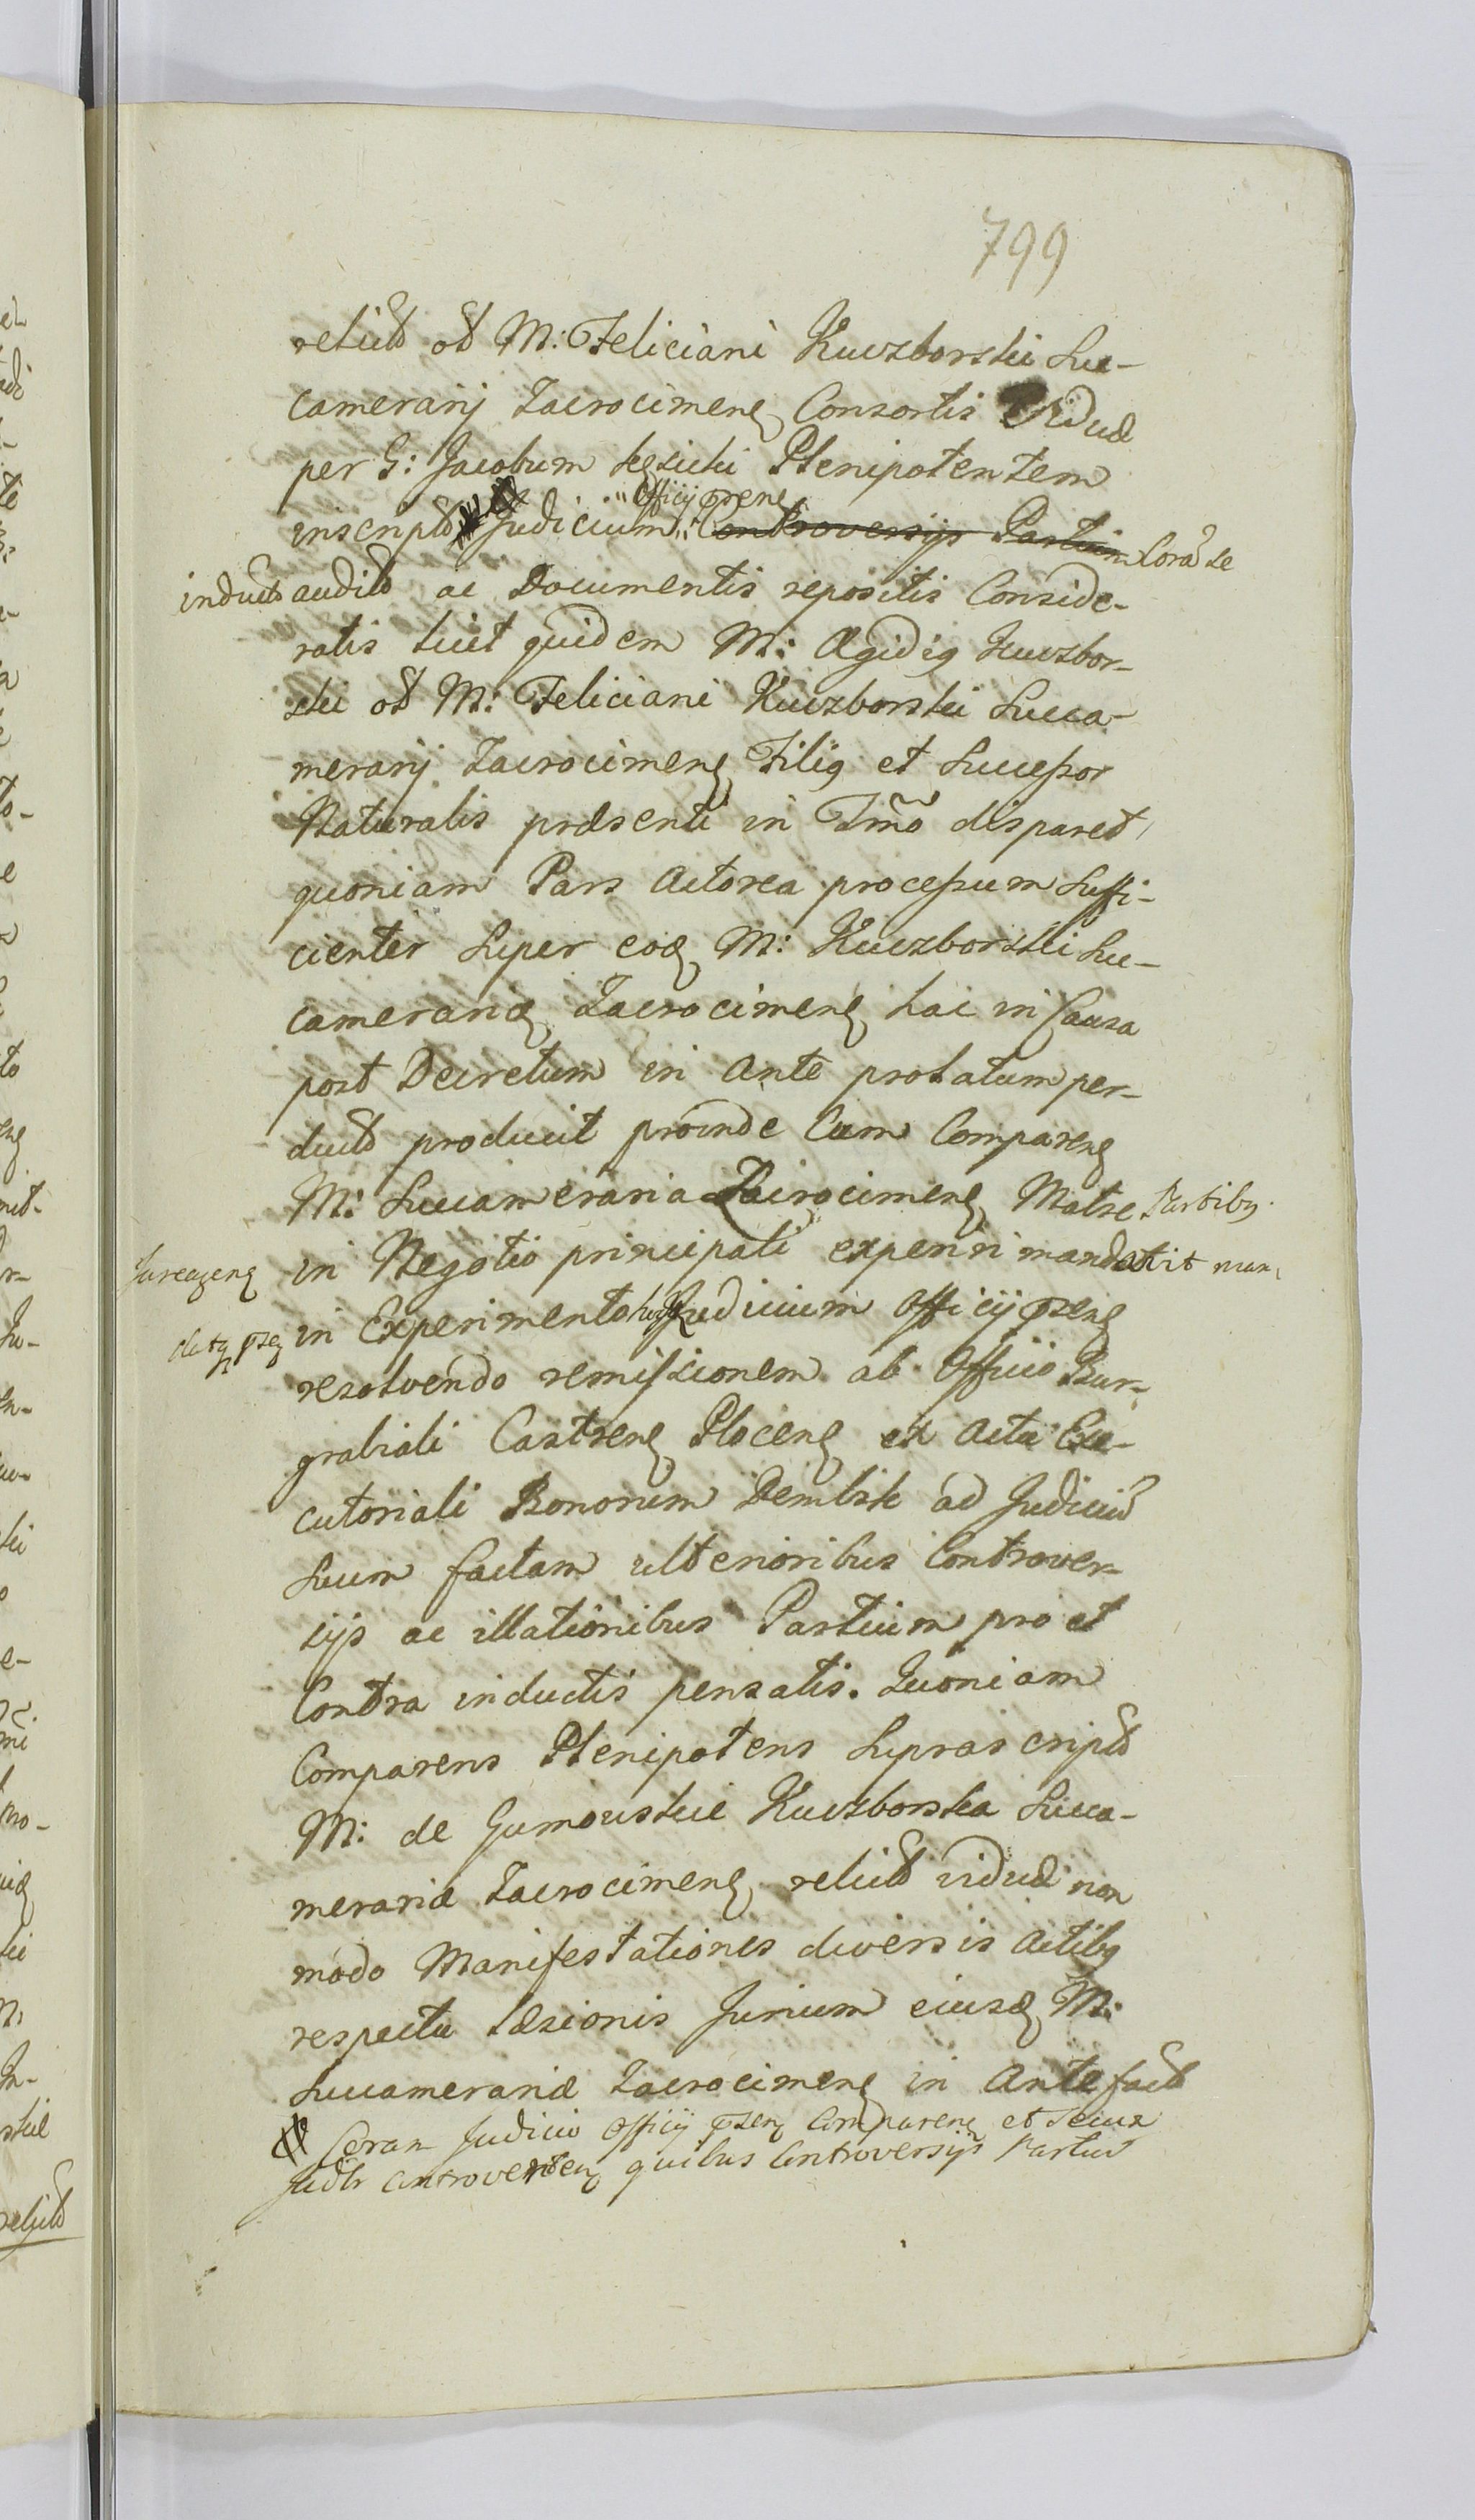 799
relictæ olim M: Feliciani Kuczborski Suc-
camerarij Zacrocimenѕ Consortis Viduæ
per G: Jacobum Plenipotentem
inscriptæ Judicium Officij præsens Controversijs Partium Coram se
inductis auditis ac Documentis repositis Conside-
ratis licet quidem M: Ægidius Kuczbor-
ski olim M: Feliciani Kuczborski Succa-
merarij Zacrocimens Filius et Successor
Naturalis præsenti in Termino disparet,
quoniam Pars Actorea processum Suffi-
cienter Super eodem M: Kuczborski Suc-
cameraride Zacrocimens hac in Causa
post Decretum in Ante prolatum per-
ductum producit proinde Cum Comparente
M: Succameraria Zacrocimens Matre Partibus
Jure agens in Negotio principali experiri mandavit man-
datque præsens in Experimento hoc Judicium Officij præsens
resolvendo remissionem ab Officio Bur-
grabiali Castrens Plocens et Actu Exe-
cutoriali Bonorum Dembsk ad Judicium
Suum factam ulterioribus Controver-
sijs ac illationibus Partium pro et
Contra inductis pensatis. Quoniam
Comparens Plenipotens Suprascriptæ
M: de Gumowskie Kuczborska Succa-
merariæ Zacrocimens relictæ viduæ non
modo Manifestationes diversis Actibus
respectu læsionis Jurium eiusdem M:
Succamerariæ Zacrocimens in Ante factas
Coram Judicio Officij præsens Comparens et secum
Judicialiter Controvertens quibus Controversijs Partium